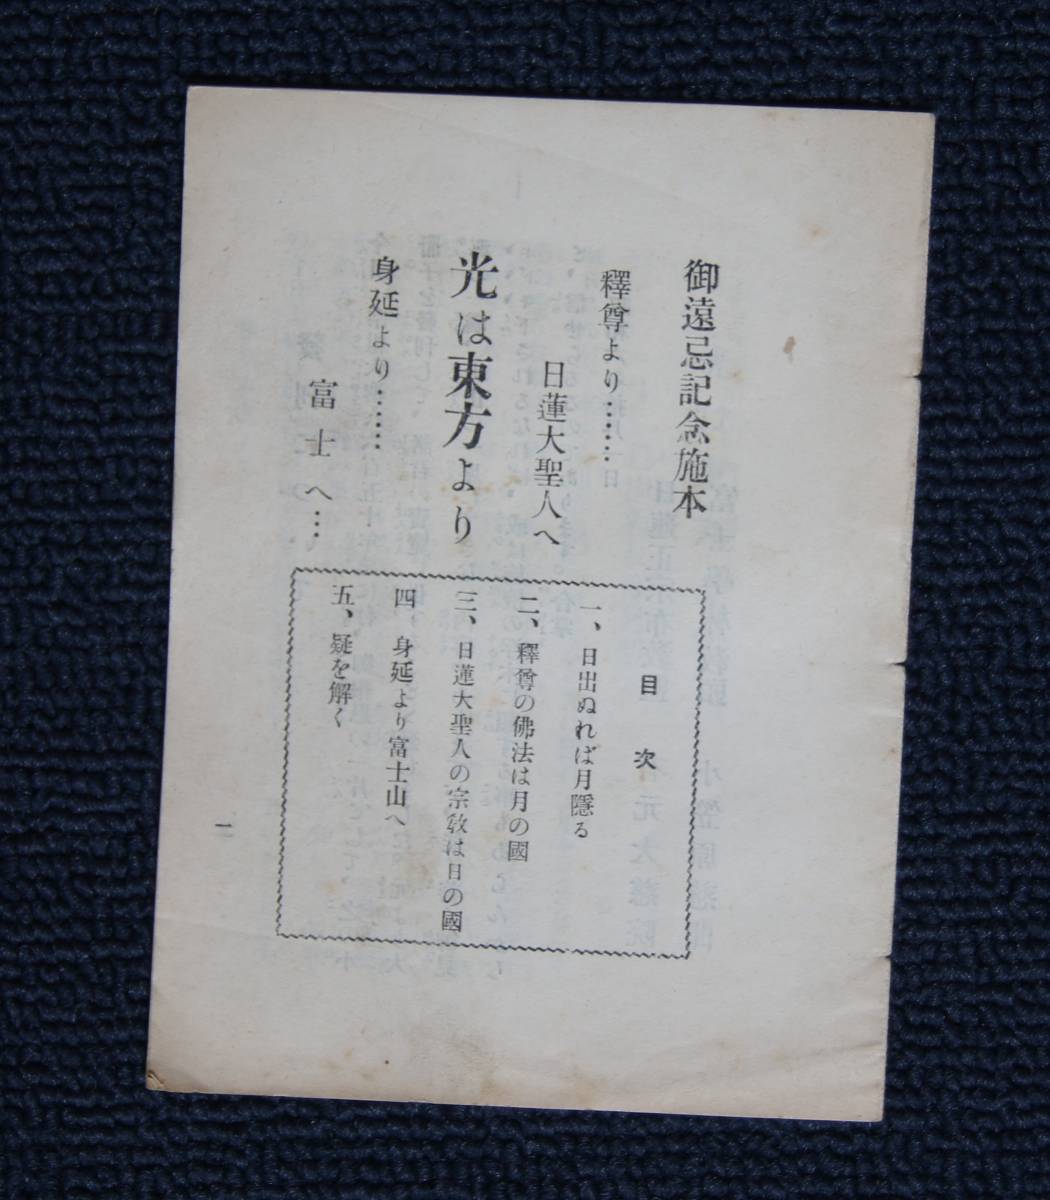 御遠忌記念施本
釋尊より……
日蓮大聖人へ
光は東方より
身延より……
富士へ…
目次
一、日出ぬれば月隱る
二、釋尊の佛法は月の國
三、日蓮大聖人の宗敎は日の國
四 身延より富士山へ
五、疑を解く
一